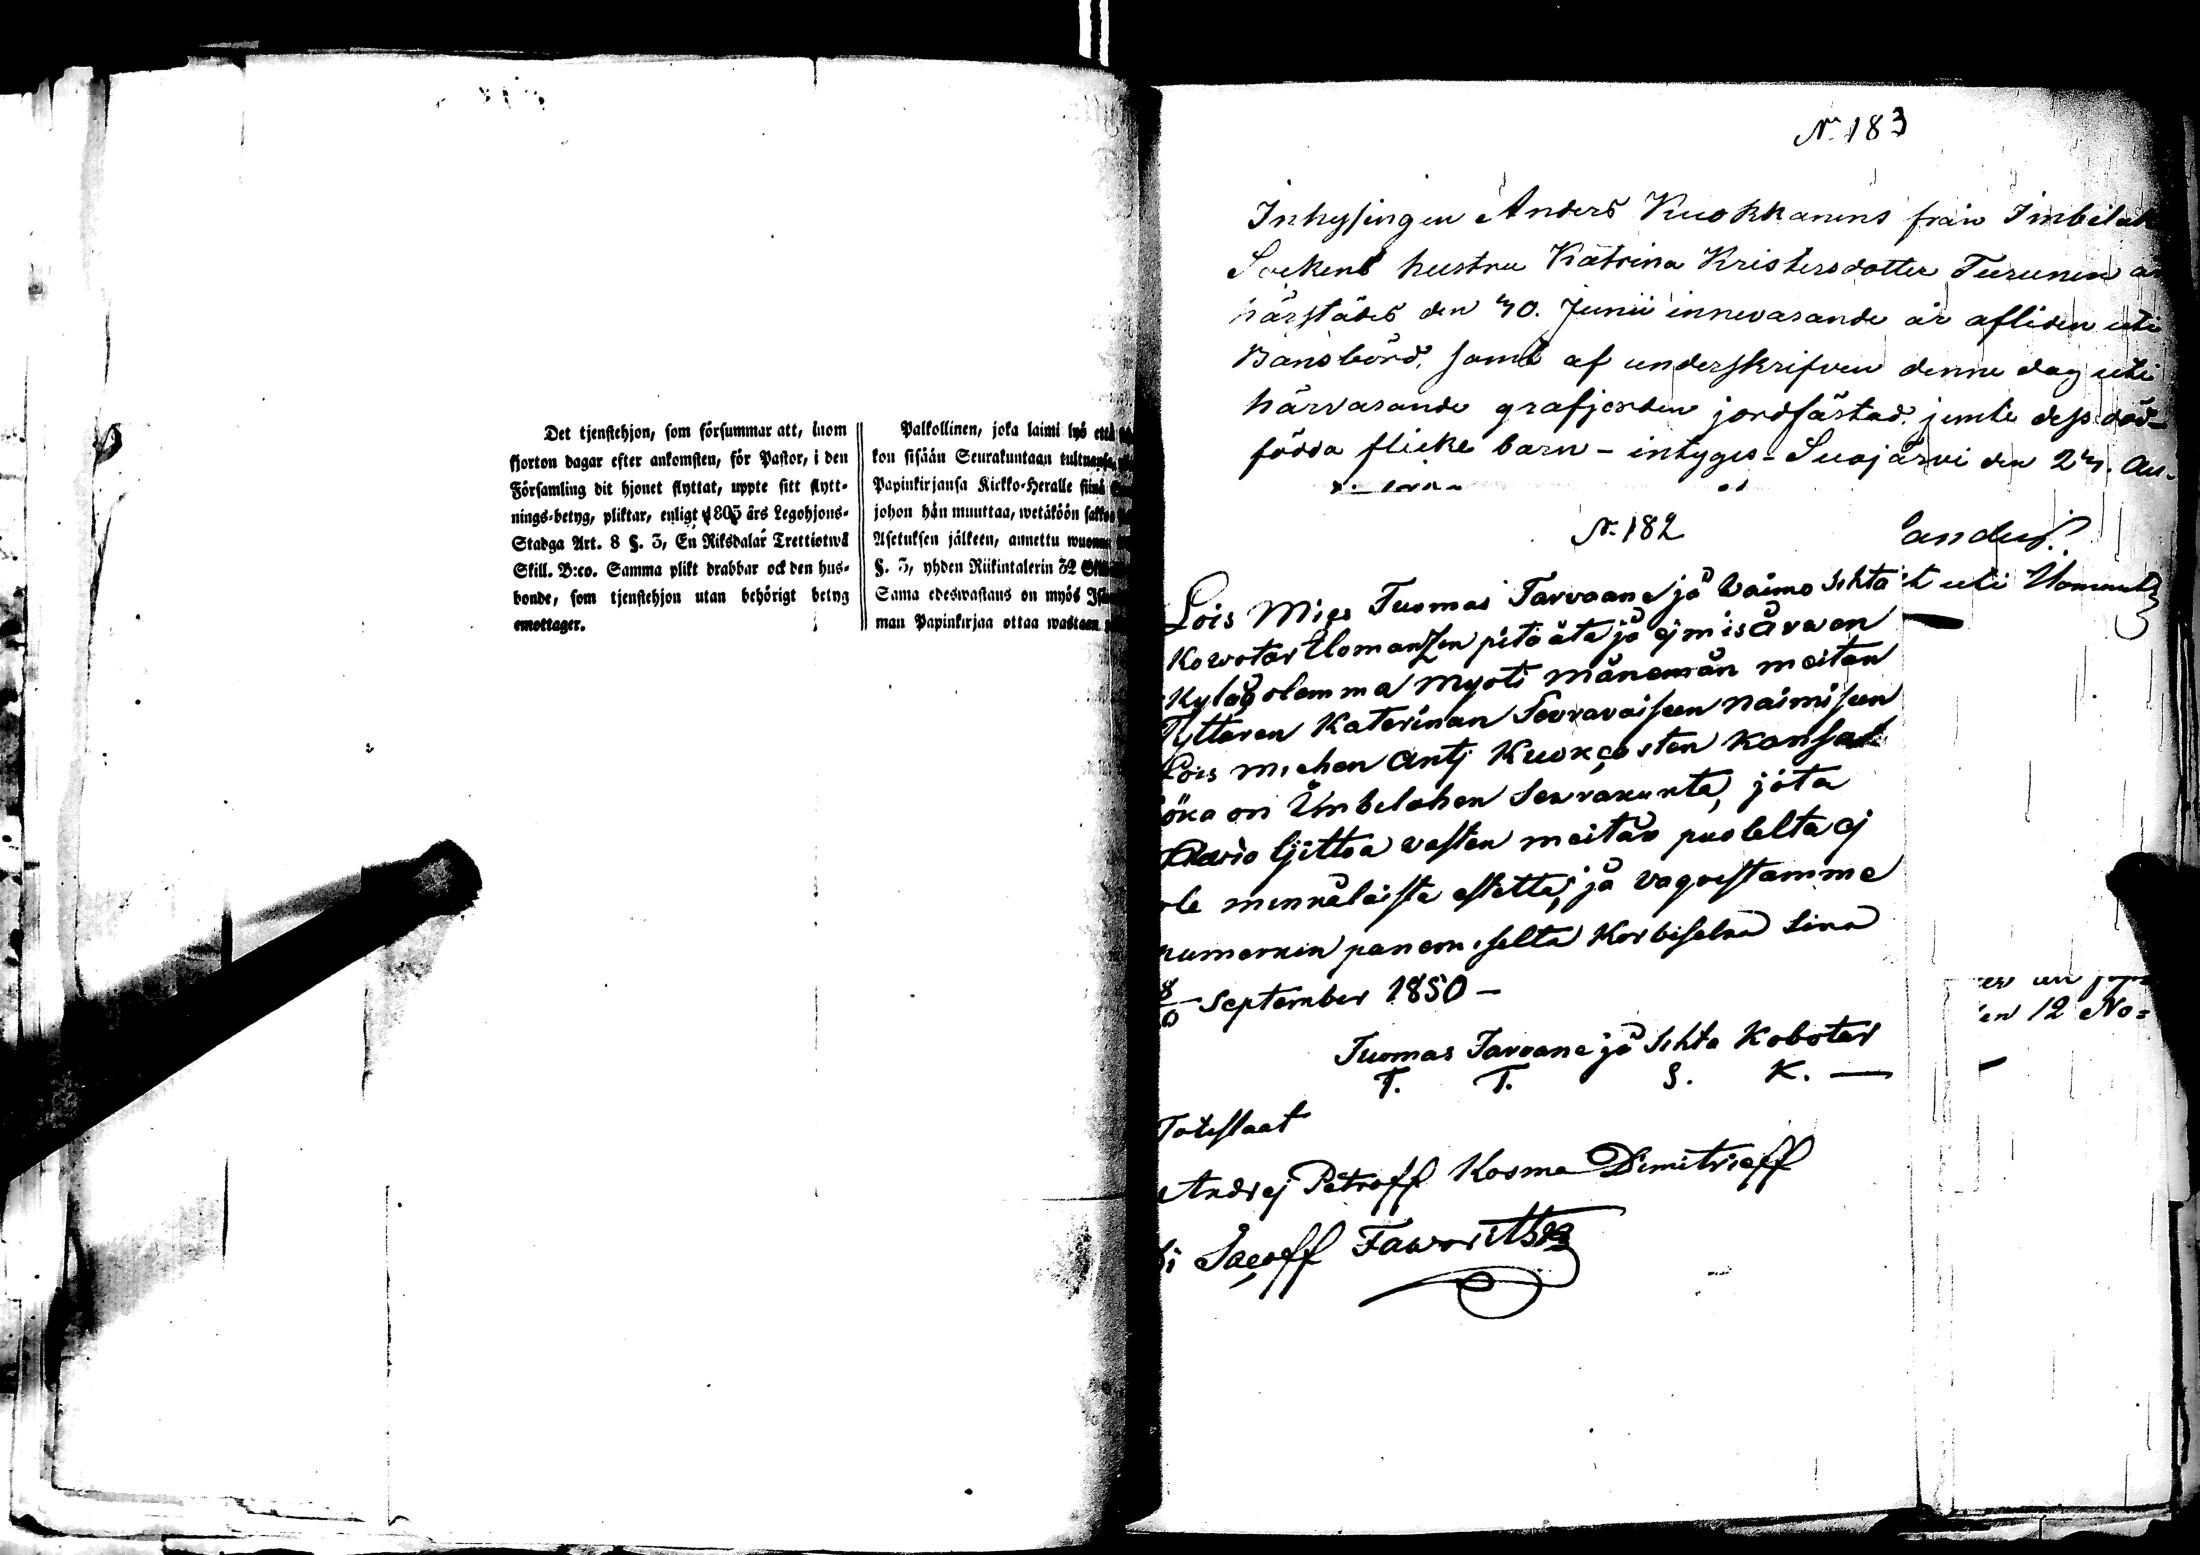 Det tjenstehjon, som försummar att, inom
fjorton dagar efter ankomsten, för Pastor, i den
Församling dit hjonet flyttat, uppte sitt flytt-
nings-betyg, pliktar, enligt 1805 års Legohjons-
Stadga Art. 8 §. 3, En Riksdalar Trettiotwå
Skill. B:co. Samma plikt drabbar ock den hus-
bonde, som tjenstehjon utan behörigt betyg
emottager.
Palkollinen, joka laimi lyö että
kon sisään Seurakuntaan tultuansa,
Papinkirjansa Kirkko-Heralle siinä
johon hän muuttaa, wetäköön sakkoa
Asetuksen jälkeen, annettu wuonna
§. 3, yhden Riikintalerin 32
Sama edeswastaus on myös
man Papinkirjaa ottaa wastaan
N 183
Inhysingen Anders Kuokkanens från Imbelak
Sockens hustru Katrina Kristersdotter Turunen
härstädes den 30. Junii innevarande år afliden uti
Barnsbörd, samt af underskrifven denne dag uti
härvarande grafjorden jordfästad, jemte dess död-
födda flicke barn - intyges - Suojärvi den 23. Au-
N. 182
Lois Mies Tuomas Tarvaane jä Vaimo Sihta
t uti Ilomants
Kowotar Ilomantzen pitääte jä
Kylää olemma myöti mänemän meitän
Tyttären Katerinan Seuravaiseen naimiseen
Lois miehen Antj Kuokcosten kansal
öka on Imbelahen Seurakunta, jöta
Awio lijttoa vasten meitän puolelta ej
ole minnäläiste estette, jä vaqvestamme
pumerkin panemiselta Korbiselka Sina
8 September 1850 -
en 12 No=
Tuomas Tarvane jä Sihta Kobotar
T. T. S. K. —
Totistaat
Andrej Petroff Kosma Dimitrieff
Jacoff Faworitski